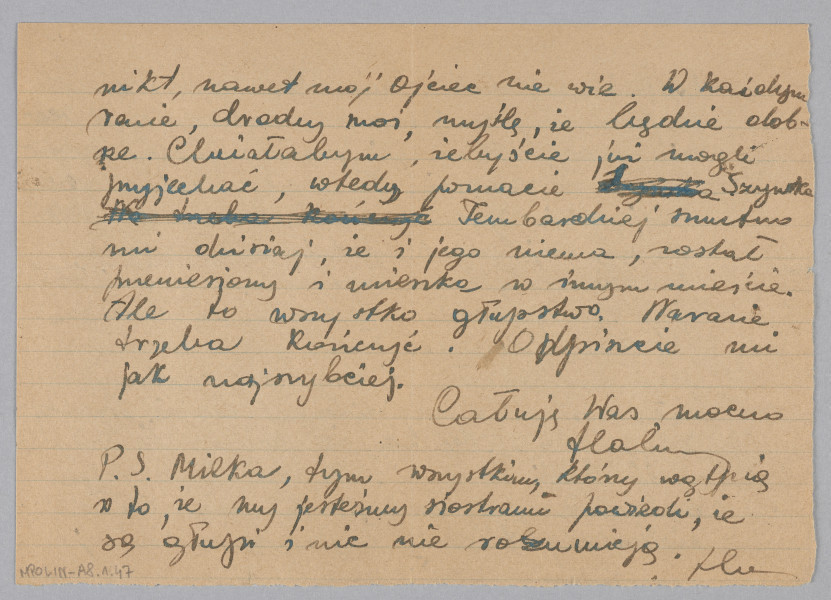 nikt, nawet mój ojciec nie wie. W każdym
razie, drodzy moi, myślę, że będzie dob-
rze. Chciałabym, żebyście już mogli
przyjechać, wtedy poznacie Szymka
Tembardziej smutno
mi dzisiaj, że i jego niema, został
przeniesiony i mieszka w innym mieście.
Ale to wszystko głupstwo. Narazie
trzeba kończyć. Odpiszcie mi
jak najszybciej.
Całuję Was mocno
Halina
P.S. Milka, tym wszystkim, którzy wątpią
w to, że my jesteśmy siostrami powiedz, że
są głupi i nic nie rozumieją.
MPOLIN-A8.1.47